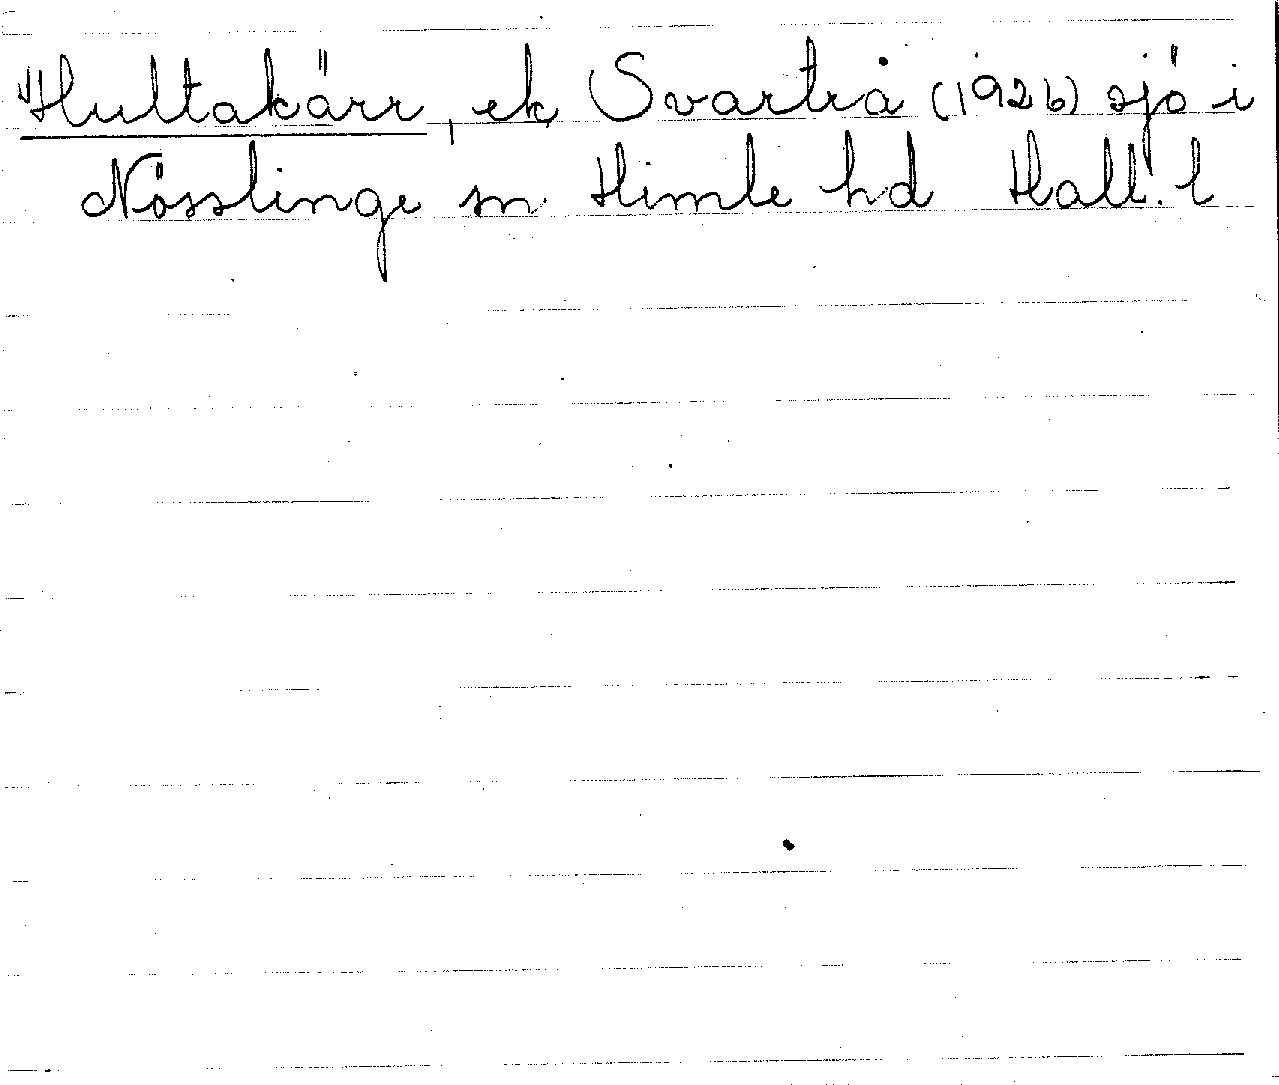 Hultakärr, ek Svartrå (1926) sjö i
Nösslinge sn Himle hd Hall. l